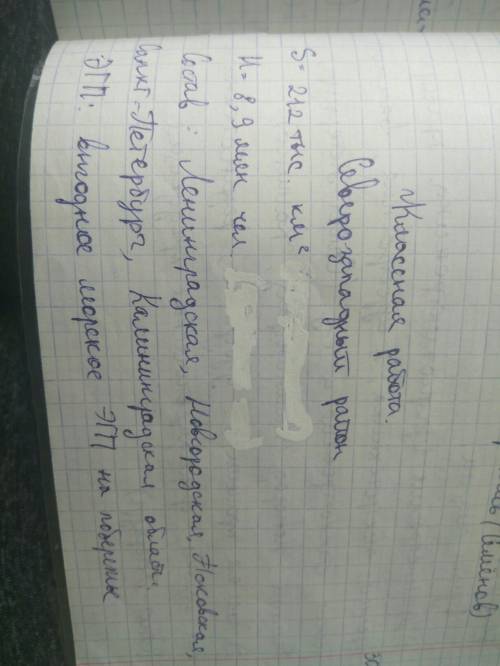 Классная работа.
Северо-западный район
S = 212 тыс. км²
Н = 8,9 млн чел
Состав: Ленинградская, Новгородская, Псковская,
Санкт-Петербург, Калининградская область.
ЭГП: выгодное морское ЭГП на побережье
(Семёнов)